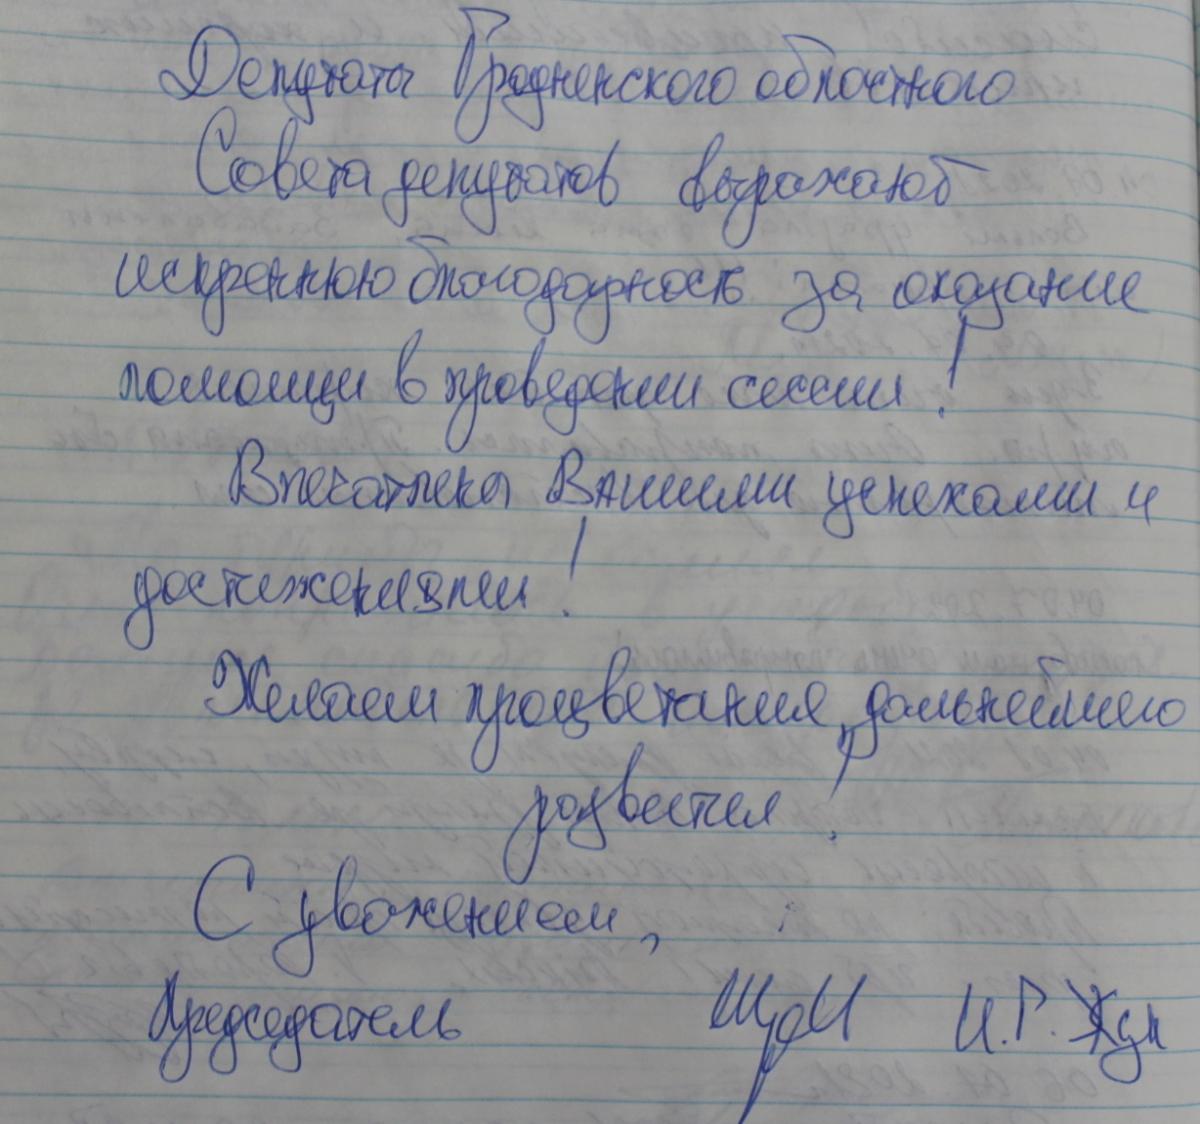 Депутаты Гродненского областного
Совета депутатов выражают
искреннюю благодарность за оказание
помощи в проведении сессии!
Впечатлены Вашими успехами и
достижениями!
Желаем процветания, дальнейшего
развития!
С уважением,
Председатель И.Г. Жук